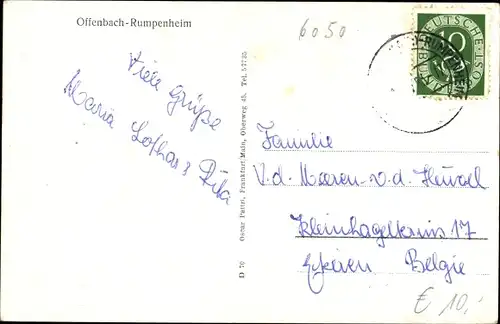 Offenbach-Rumpenheim
6050
DEUTSCHE POST
10
Viele Grüße
Maria Lothar & Rita
D 70 Oscar Patri, Frankfurt/Main, Oberweg 45, Tel. 57735
Familie
V.d. Meeren-v.d. Heuvel
Kleinhagelkruis 17
Ekeren Belgie
€ 10,-